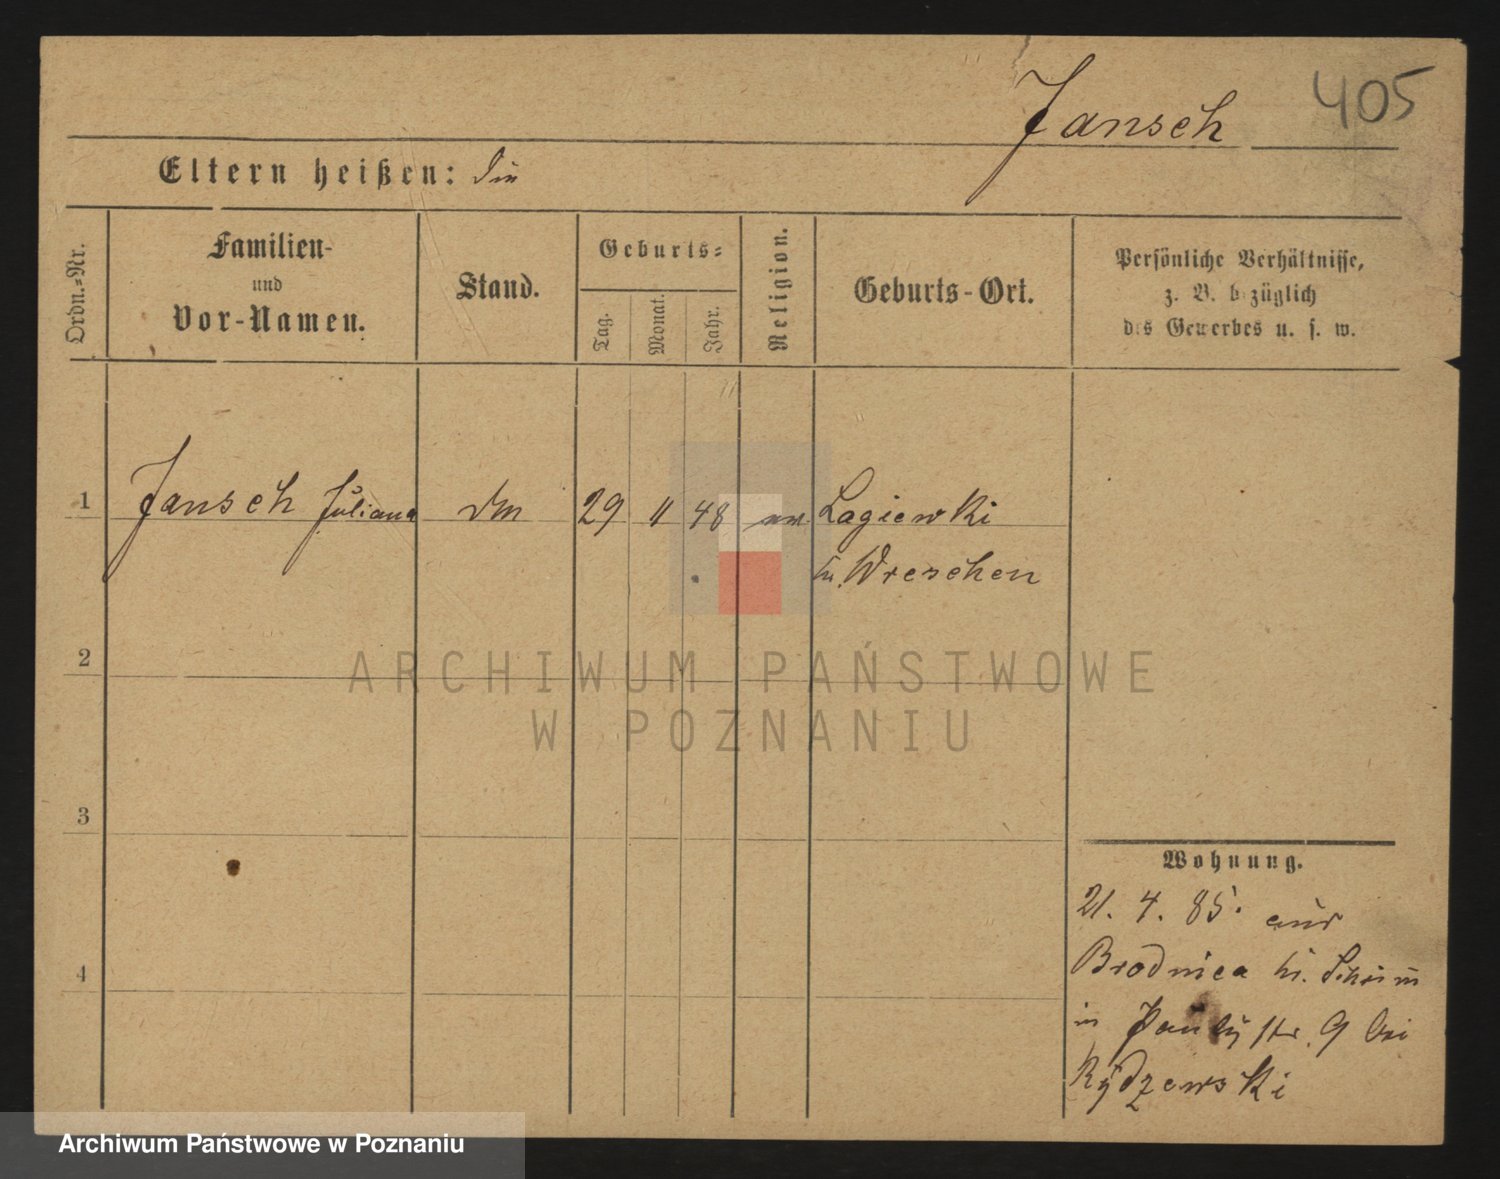 405
Jansch
Eltern heißen:
Ordn.-Nr.
Familien-
und
Vor-Namen.
Stand.
Geburts-
Tag.
Monat.
Jahr.
Religion.
Geburts-Ort.
Persönliche Verhältnisse,
z. B. bezüglich
des Gewerbes u. s. w.
1 Jansch Juliana 29 11 48 Lagiewki
Kr. Wreschen
2
3
4
ARCHIWUM PAŃSTWOWE
W POZNANIU
Wohnung.
21. 4. 85. aus
Brodnica Kr. Schrimm
in Pauly str. 9 bei
Rydzewski
Archiwum Państwowe w Poznaniu